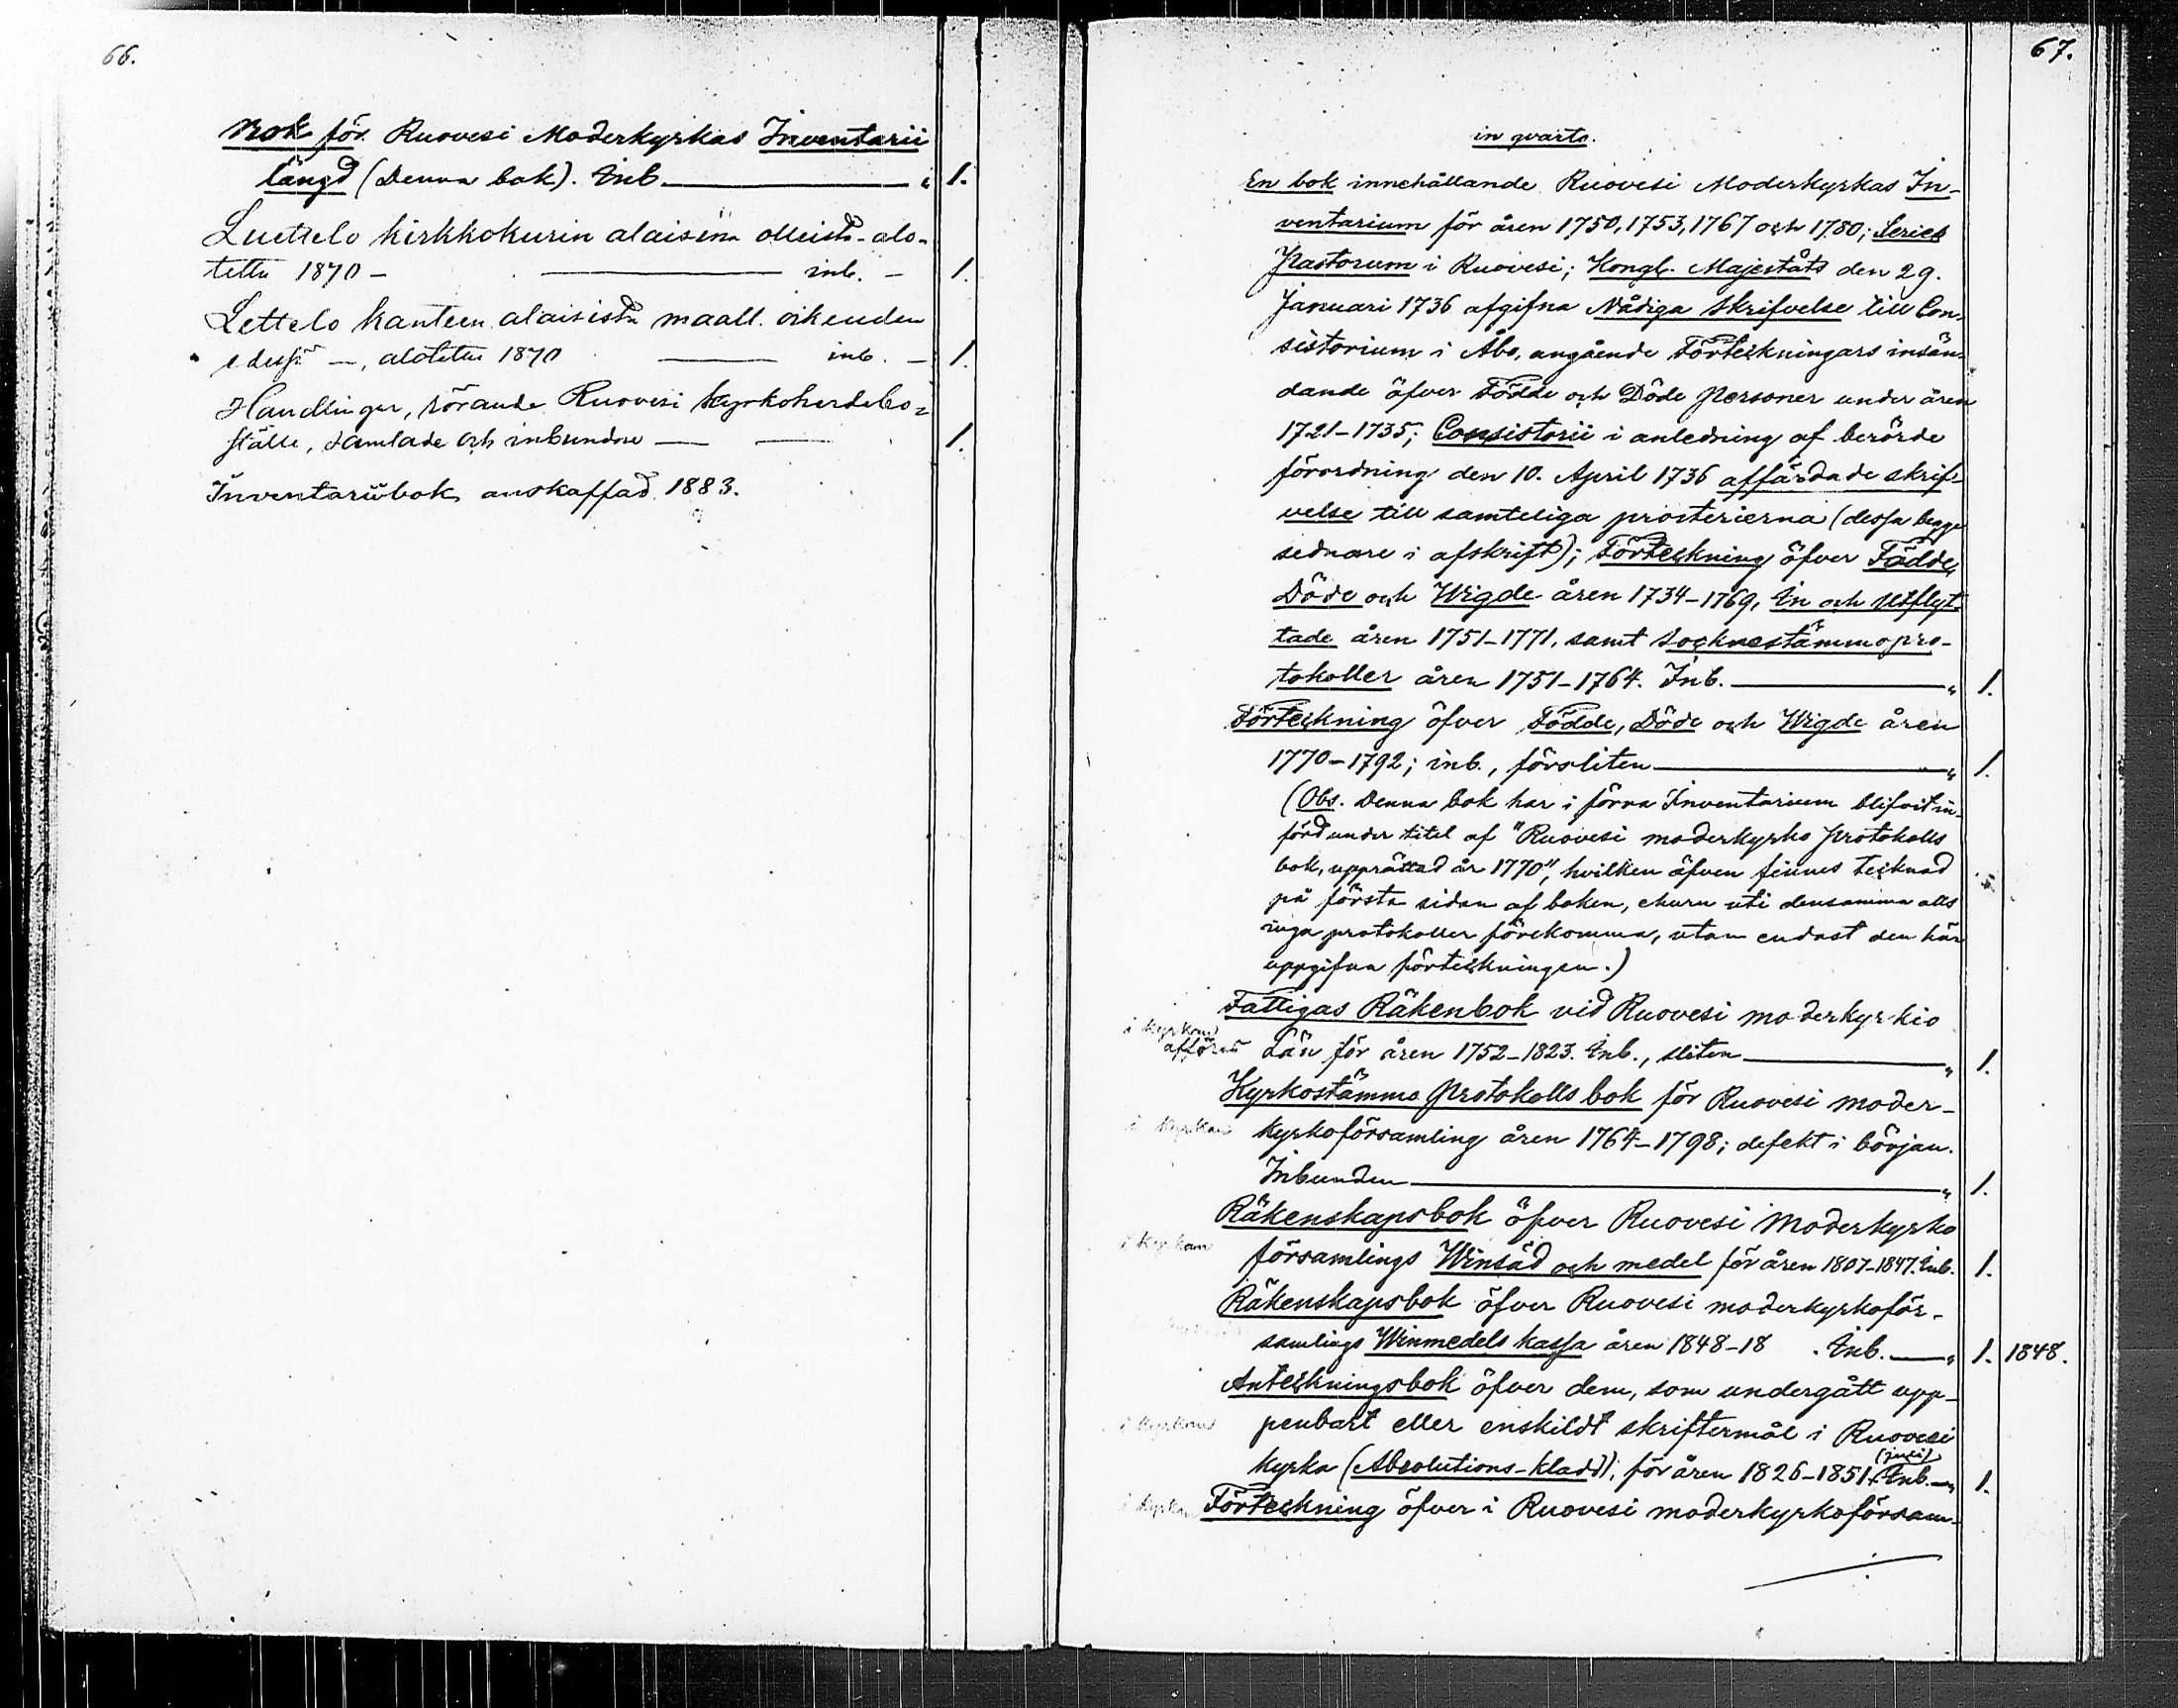 66.
Bok för Ruovesi Moderkyrkas Inventarii
längd (Denna bok). Inb. „ 1.
Luettelo kirkkokurin alaisina olleista - alo-
tettu 1870 - inb. - 1.
Lettelo kanteen alaisista maall. oikeuden
edessä -, alotettu 1870 inb. - 1.
Handlingar, rörande Ruovesi kyrkoherdebo-
ställe, samlade och inbundne 1.
Inventariibok anskaffad 1883.
67.
in qvarto.
En bok innehållande Ruovesi Moderkyrkas In-
ventarium för åren 1750, 1753, 1767 och 1780; Series
Pastorum i Ruovesi; Kongl. Majestäts den 29.
Januari 1736 afgifna Nådiga skrifvelse till Con-
sistorium i Åbo, angående Förteckningars insän-
dande öfver Födde och Döde Personer under åren
1721-1735; Consistorii i anledning af berörde
förordning den 10. April 1736 affärdade skrif-
velse till samteliga prosterierna (dessa begge
sednare i afskrift); Förteckning öfver Födde,
Döde och Wigde åren 1734-1769, In och Utflyt-
tade åren 1751-1771, samt socknestämmopro-
tokoller åren 1751-1764. Inb. „ 1.
Förteckning öfver Födde, Döde och Wigde åren
1770-1792; inb., försliten „ 1.
(Obs. Denna bok har i förra Inventarium blifvit in-
förd under titel af "Ruovesi moderkyrko Protokolls
bok, upprättad år 1770", hvilken äfven finnes tecknad
på första sidan af boken, ehuru uti densamma alls
inga protokoller förekomma, utan endast den här
uppgifna förteckningen.)
Fattigas Räkenbok vid Ruovesi moderkyrkio
i kyrkans afförd Län för åren 1752-1823. Inb., sliten „ 1.
Kyrkostämmo Protokolls bok för Ruovesi moder-
i kyrkans kyrkoförsamling åren 1764-1798; defekt i början.
Inbunden „ 1.
Räkenskapsbok öfver Ruovesi Moderkyrko
i kyrkans församlings Winsäd och medel för åren 1807-1847. Inb. 1.
Räkenskapsbok öfver Ruovesi moderkyrkoför-
samlings Winmedels kassa åren 1848-18 . Inb. „ 1. 1848.
Anteckningsbok öfver dem, som undergått upp-
i kyrkans penbart eller enskildt skriftermål i Ruovesi
kyrka (Absolutions-kladd); för åren 1826-1851 (juli). Inb. „ 1.
i kyrkans Förteckning öfver i Ruovesi moderkyrkoförsam-